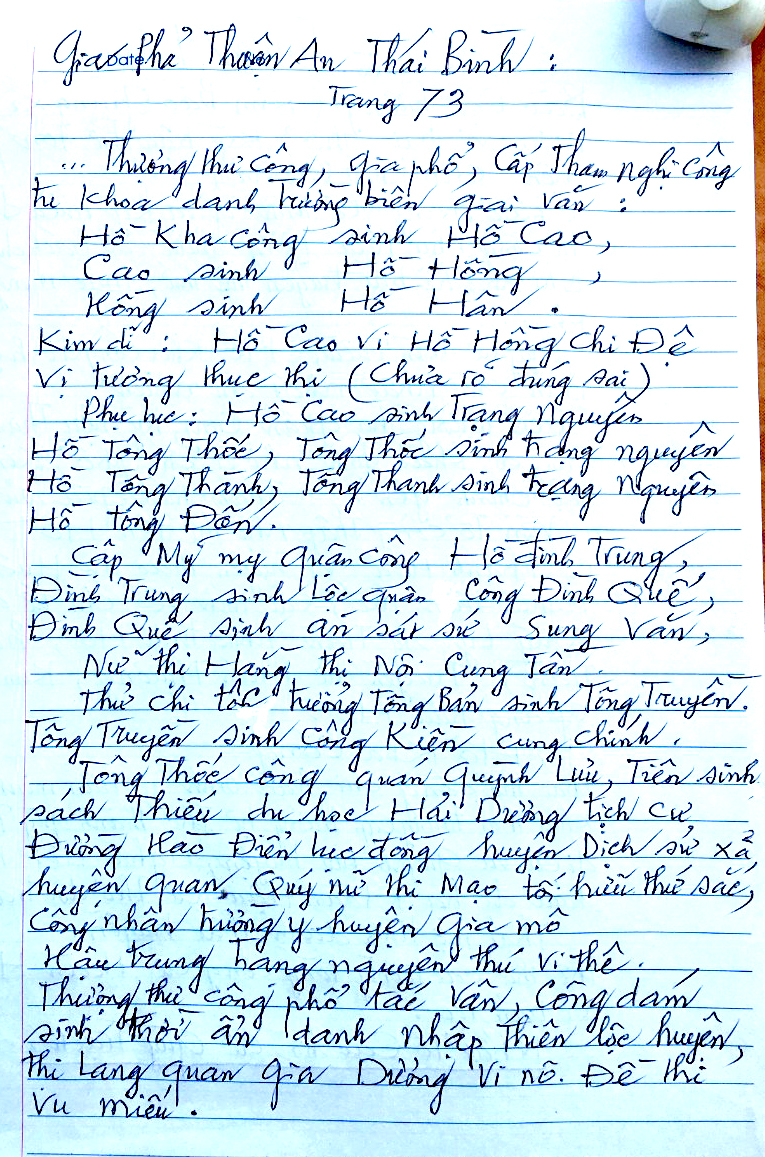 Gia Phả Thuận An Thái Bình :
Trang 73
... Thượng thư công, gia phổ, Cấp Tham nghị công
tu khoa danh Trường biên giai văn :
Hồ Kha công sinh Hồ Cao,
Cao sinh Hồ Hồng,
Hồng sinh Hồ Hân.
Kim dĩ : Hồ Cao vi Hồ Hồng Chi Đệ
Vị tường thục thị (Chưa rõ đúng sai)
Phụ lục : Hồ Cao sinh Trạng Nguyên
Hồ Tông Thốc, Tông Thốc sinh trạng nguyên
Hồ Tông Thành, Tông Thành sinh trạng Nguyên
Hồ tông Đốn.
Cấp Mỹ my Quận công Hồ đình Trung,
Đình Trung sinh Lộc quận công Đình Quế,
Đình Quế sinh án sát sứ Sung Văn,
Nữ thi Hằng thị Nội Cung Tần.
Thứ chi tôn trưởng Tông Bản sinh Tông Truyền.
Tông Truyền sinh công Kiền cung chính.
Tông Thốc công quán Quỳnh Lưu, Tiên sinh
sách Thiếu du học Hải Dương tịch cư
Đường Hào Điển lục đồng huyện Dịch sử xả,
huyện quan Quý nữ thi Mạo tố hữu thứ sắc,
công nhân tương y huyện Gia mô
Hậu trung trang nguyên thú vi thê.
Thượng thư công phổ tác vân, Công dám
sinh thời ẩn danh nhập Thiên lộc huyện,
thi Lang quan gia Dưỡng vi nô. Đề thi
vu miếu.